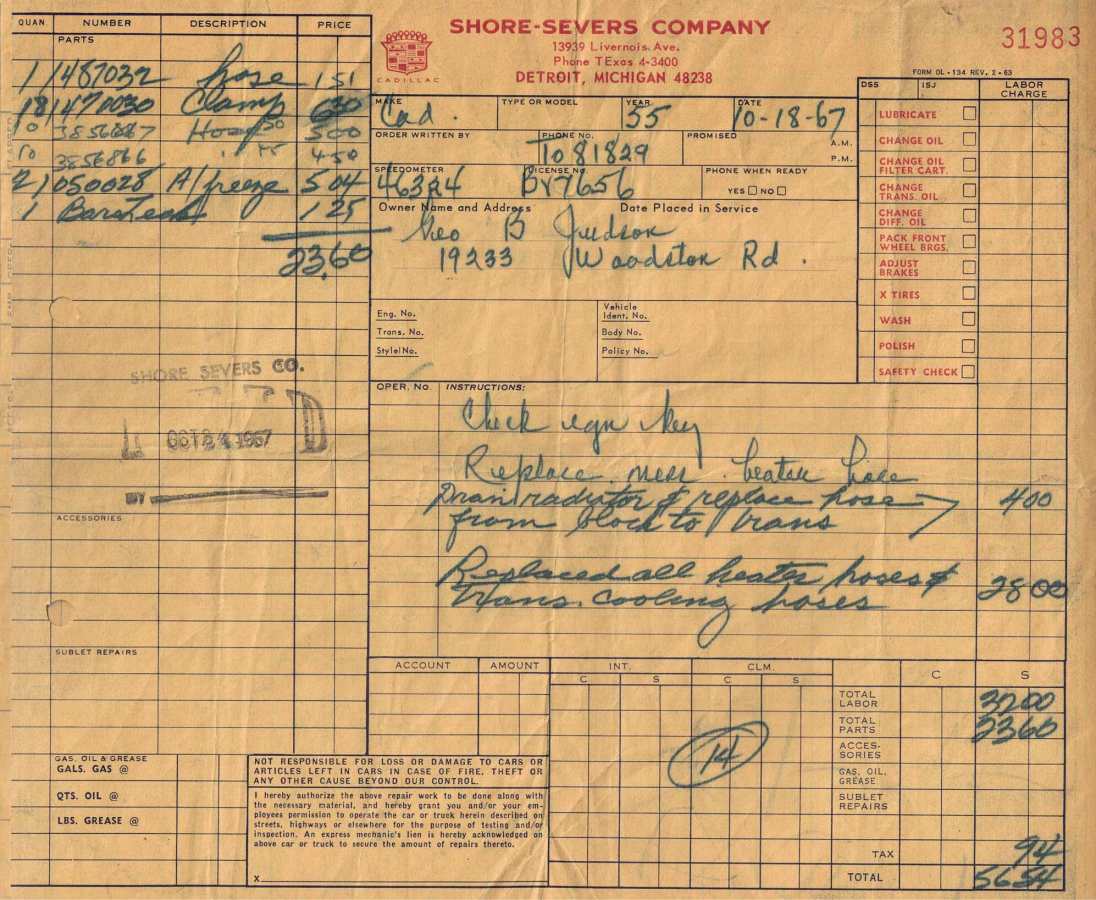 SHORE-SEVERS COMPANY
13939 Livernois Ave.
Phone TExas 4-3400
DETROIT, MICHIGAN 48238
CADILLAC
31983
FORM OL-134 REV. 2-63
QUAN NUMBER DESCRIPTION PRICE
PARTS
1 1487032 hose 1 51
18 1470030 Clamp 6 30
10 3856867 Hose 5 00
10 3856866 4 50
2 1050028 A/freeze 5 04
1 Bars Leak 1 25
23.60
SHORE SEVERS CO.
OCT 24 1967
BY
ACCESSORIES
SUBLET REPAIRS
GAS, OIL & GREASE
GALS. GAS @
QTS. OIL @
LBS. GREASE @
MAKE Cad.
TYPE OR MODEL
YEAR 55
DATE 10-18-67
ORDER WRITTEN BY
PHONE NO. To 81829
PROMISED A.M.
P.M.
SPEEDOMETER 46324
LICENSE NO. BV7656
PHONE WHEN READY
YES NO
Owner Name and Address Date Placed in Service
Geo B Judson
19233 Woodston Rd.
Eng. No.
Trans. No.
Style No.
Vehicle
Ident. No.
Body No.
Policy No.
DSS ISJ LABOR
CHARGE
LUBRICATE
CHANGE OIL
CHANGE OIL
FILTER CART.
CHANGE
TRANS. OIL
CHANGE
DIFF. OIL
PACK FRONT
WHEEL BRGS.
ADJUST
BRAKES
X TIRES
WASH
POLISH
SAFETY CHECK
OPER. No. INSTRUCTIONS:
Check ign key
Replace heater hose
Drain radiator & replace hose 4 00
from block to trans
Replaced all heater hoses &
trans. cooling hoses 28 00
ACCOUNT AMOUNT INT. CLM. C S
C S C S
14
TOTAL
LABOR 32 00
TOTAL
PARTS 23 60
ACCES-
SORIES
GAS, OIL,
GREASE
SUBLET
REPAIRS
TAX 94
TOTAL 56 54
NOT RESPONSIBLE FOR LOSS OR DAMAGE TO CARS OR
ARTICLES LEFT IN CARS IN CASE OF FIRE, THEFT OR
ANY OTHER CAUSE BEYOND OUR CONTROL.
I hereby authorize the above repair work to be done along with
the necessary material, and hereby grant you and/or your em-
ployees permission to operate the car or truck herein described on
streets, highways or elsewhere for the purpose of testing and/or
inspection. An express mechanic's lien is hereby acknowledged on
above car or truck to secure the amount of repairs thereto.
X